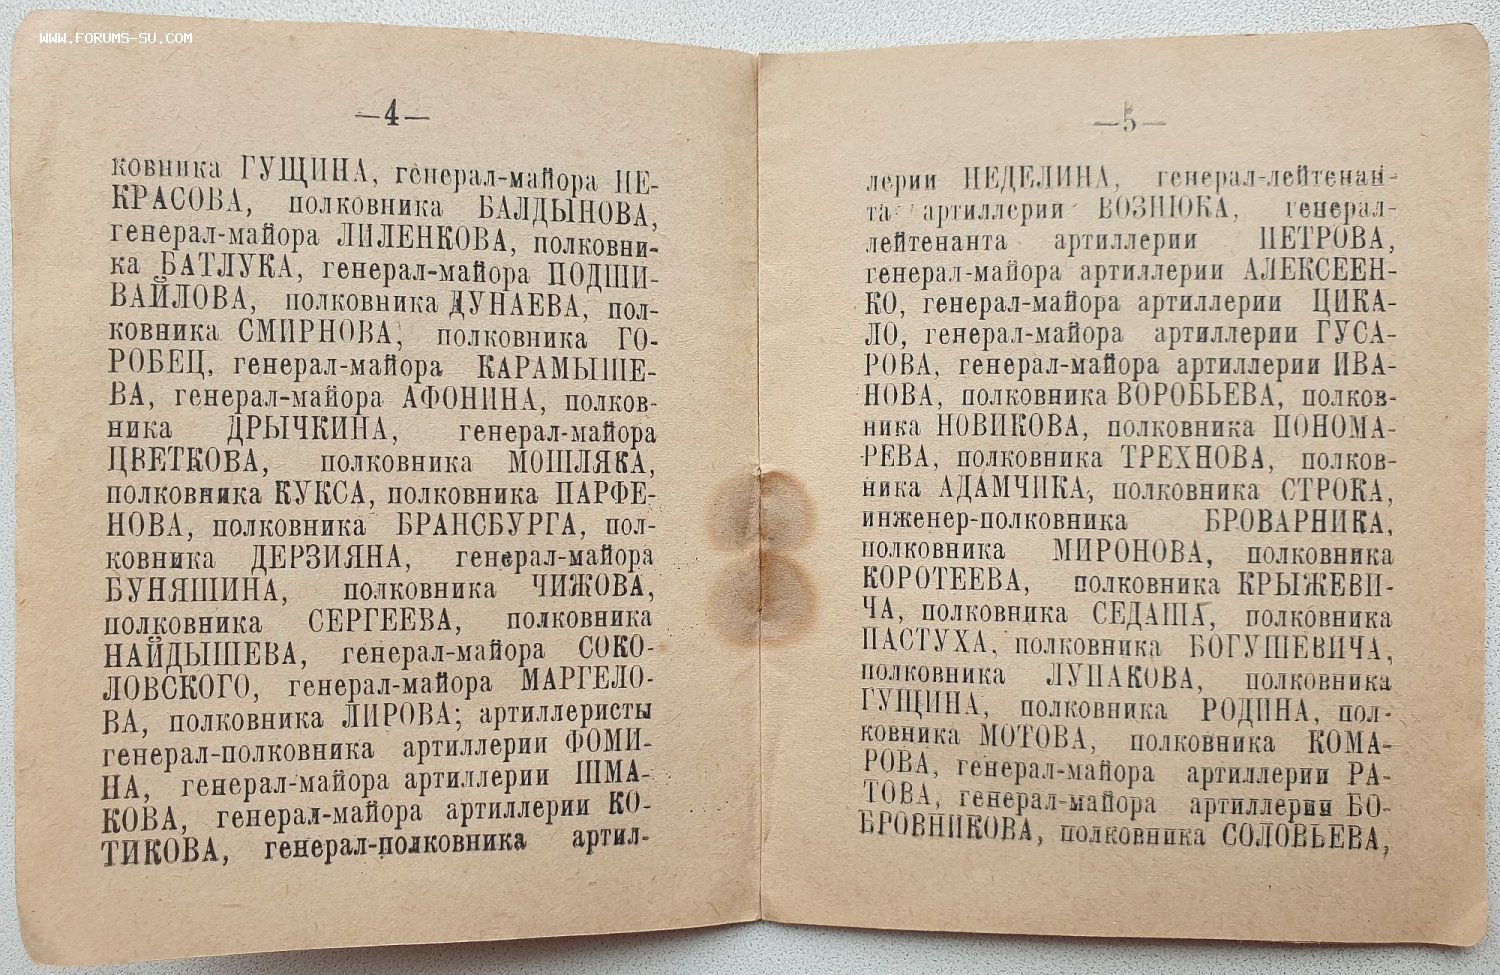 WWW.FORUMS-SU.COM
—4—
ковника ГУЩИНА, генерал-майора НЕ-
КРАСОВА, полковника БАЛДЫНОВА,
генерал-майора ЛИЛЕНКОВА, полковни-
ка БАТЛУКА, генерал-майора ПОДШИ-
ВАЙЛОВА, полковника ДУНАЕВА, пол-
ковника СМИРНОВА, полковника ГО-
РОБЕЦ, генерал-майора КАРАМЫШЕ-
ВА, генерал-майора АФОНИНА, полков-
ника ДРЫЧКИНА, генерал-майора
ЦВЕТКОВА, полковника МОШЛЯКА,
полковника КУКСА, полковника ПАРФЕ-
НОВА, полковника БРАНСБУРГА, пол-
ковника ДЕРЗИЯНА, генерал-майора
БУНЯШИНА, полковника ЧИЖОВА,
полковника СЕРГЕЕВА, полковника
НАЙДЫШЕВА, генерал-майора СОКО-
ЛОВСКОГО, генерал-майора МАРГЕЛО-
ВА, полковника ЛИРОВА; артиллеристы
генерал-полковника артиллерии ФОМИ-
НА, генерал-майора артиллерии ШМА-
КОВА, генерал-майора артиллерии КО-
ТИКОВА, генерал-полковника артил-
—5—
лерии НЕДЕЛИНА, генерал-лейтенан-
та артиллерии ВОЗНЮКА, генерал-
лейтенанта артиллерии ПЕТРОВА,
генерал-майора артиллерии АЛЕКСЕЕН-
КО, генерал-майора артиллерии ЦИКА-
ЛО, генерал-майора артиллерии ГУСА-
РОВА, генерал-майора артиллерии ИВА-
НОВА, полковника ВОРОБЬЕВА, полков-
ника НОВИКОВА, полковника ПОНОМА-
РЕВА, полковника ТРЕХНОВА, полков-
ника АДАМЧИКА, полковника СТРОКА,
инженер-полковника БРОВАРНИКА,
полковника МИРОНОВА, полковника
КОРОТЕЕВА, полковника КРЫЖЕВИ-
ЧА, полковника СЕДАША, полковника
ПАСТУХА, полковника БОГУШЕВИЧА,
полковника ЛУПАКОВА, полковника
ГУЩИНА, полковника РОДИНА, пол-
ковника МОТОВА, полковника КОМА-
РОВА, генерал-майора артиллерии РА-
ТОВА, генерал-майора артиллерии БО-
БРОВНИКОВА, полковника СОЛОВЬЕВА,